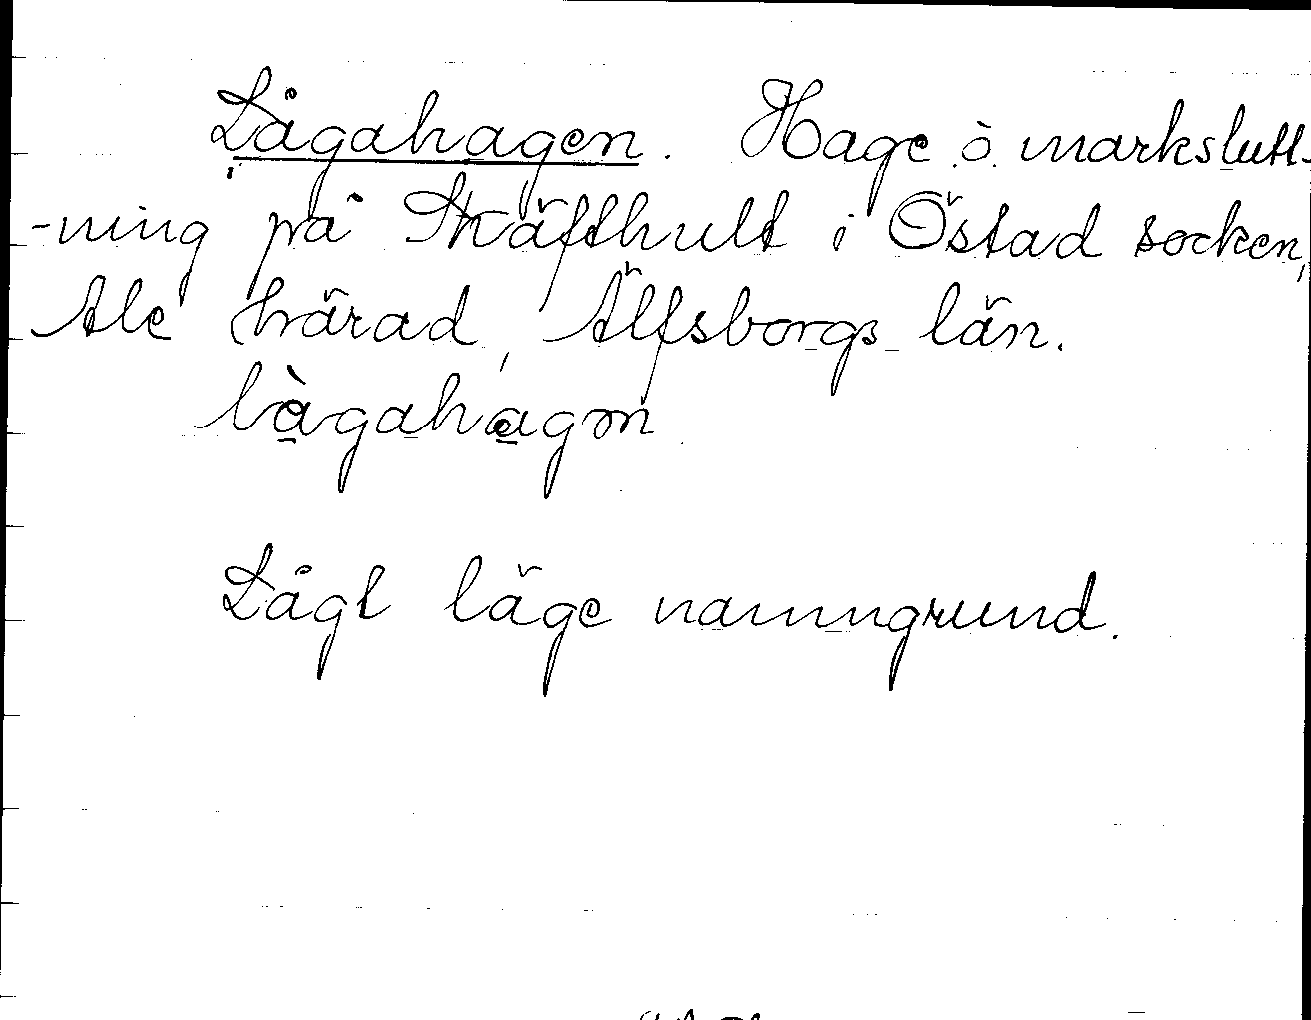 Lågahagen. Hage å markslutt-
-ning på Skäfthult i Östad socken,
Ale härad, Älfsborgs län.
lågahagən
Lågt läge namngrund.